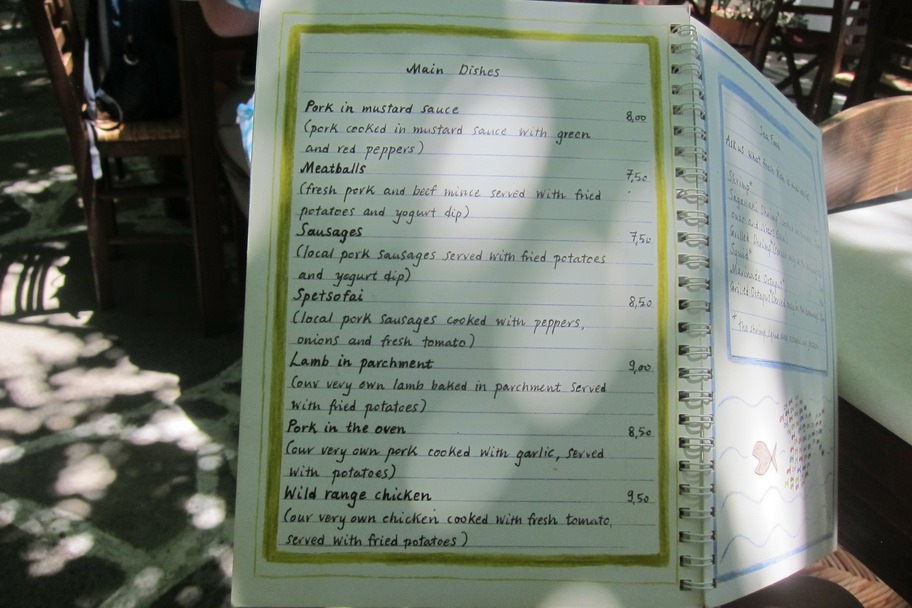 Main Dishes
Pork in mustard sauce 8,00
(pork cooked in mustard sauce with green
and red peppers)
Meatballs 7,50
(fresh pork and beef mince served with fried
potatoes and yogurt dip)
Sausages 7,50
(local pork sausages served with fried potatoes
and yogurt dip)
Spetsofai 8,50
(local pork sausages cooked with peppers,
onions and fresh tomato)
Lamb in parchment 9,00
(our very own lamb baked in parchment served
with fried potatoes)
Pork in the oven 8,50
(our very own pork cooked with garlic, served
with potatoes)
Wild range chicken 9,50
(our very own chicken cooked with fresh tomato,
served with fried potatoes)
Sea Food
Ask us what fresh
Shrimp*
Squid*